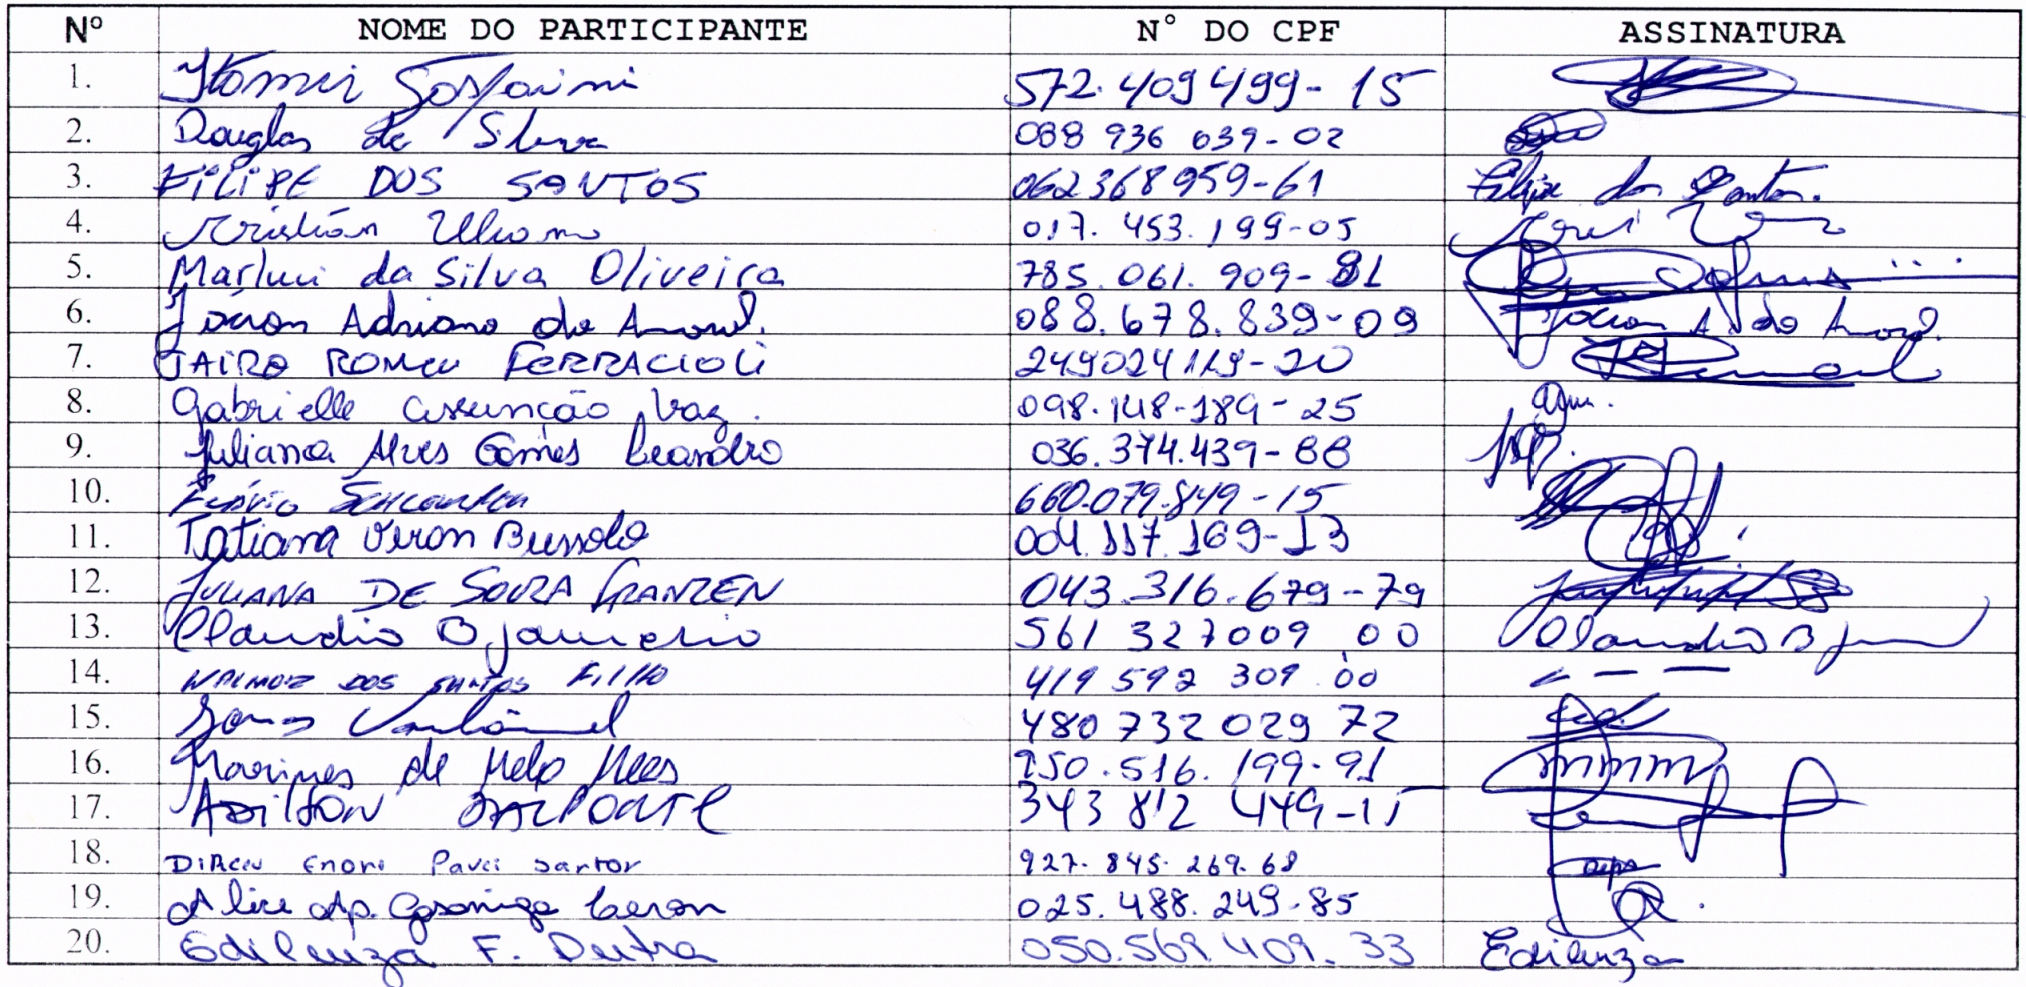 Nº NOME DO PARTICIPANTE N° DO CPF ASSINATURA
1. Itamir 572.409499-15
2. Douglas da Silva 088 936 639-02
3. FILIPE DOS SANTOS 062368959-61 Filipe dos Santos.
4. Kristián Uliano 017.453.199-05
5. Marluci da Silva Oliveira 785.061.909-81
6. Jocron Adriano do Amaral. 088.678.839-09 A. do Amaral.
7. JAIRO ROMEU FERRACIOLI 249024119-20
8. Gabrielle Assunção Vaz. 098.148.189-25
9. Juliana Alves Gomes Leandro 036.374.439-88
10. Flávio 660.079.849-15
11. Tatiana Veron Bussolo 004.117.169-13
12. JULIANA DE SOUZA FRANZEN 043.316.679-79
13. Claudio B Januario 561 327009 00 Claudio B J
14. WALMOR DOS SANTOS FILHO 419 592 309 00
15. 480 732 029 72
16. Marines de Melo Mees 950.516.199-91
17. ADILSON DALPONTE 343 812 449-15
18. Dirceu Enori Pavei Sartor 927.845.269.68
19. Alice Ap. Ceron 025.488.249-85
20. Edileuza F. Dutra 050.569.409.33 Edileuza